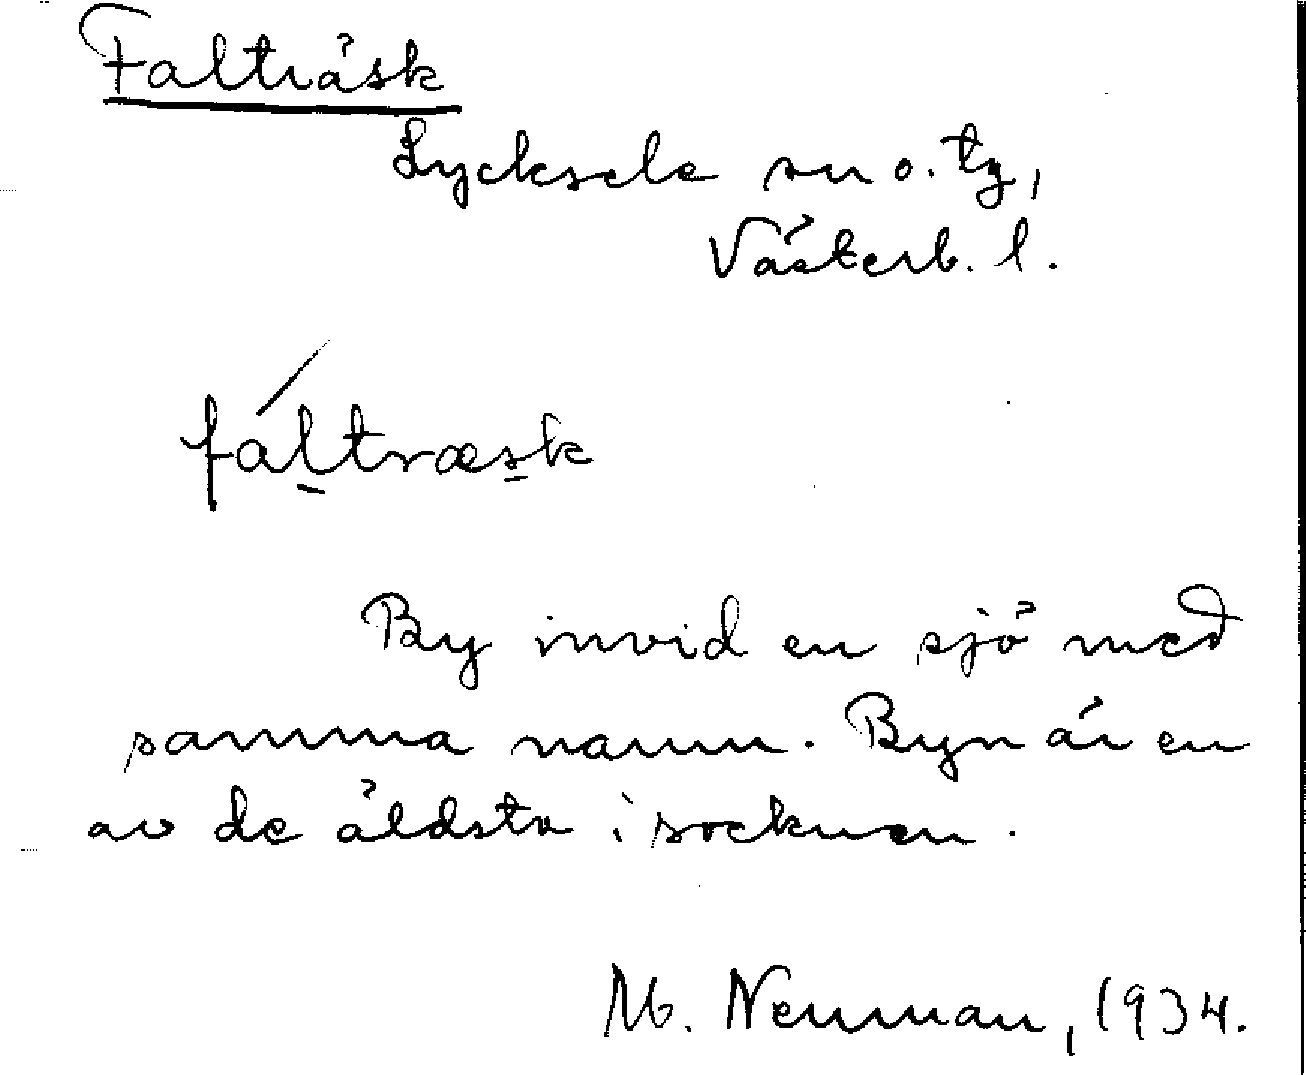 Falträsk
Lycksele sn o. tg,
Västerb. l.
fáltræsk
By invid en sjö med
samma namn. Byn är en
av de äldsta i socknen.
M. Neuman, 1934.